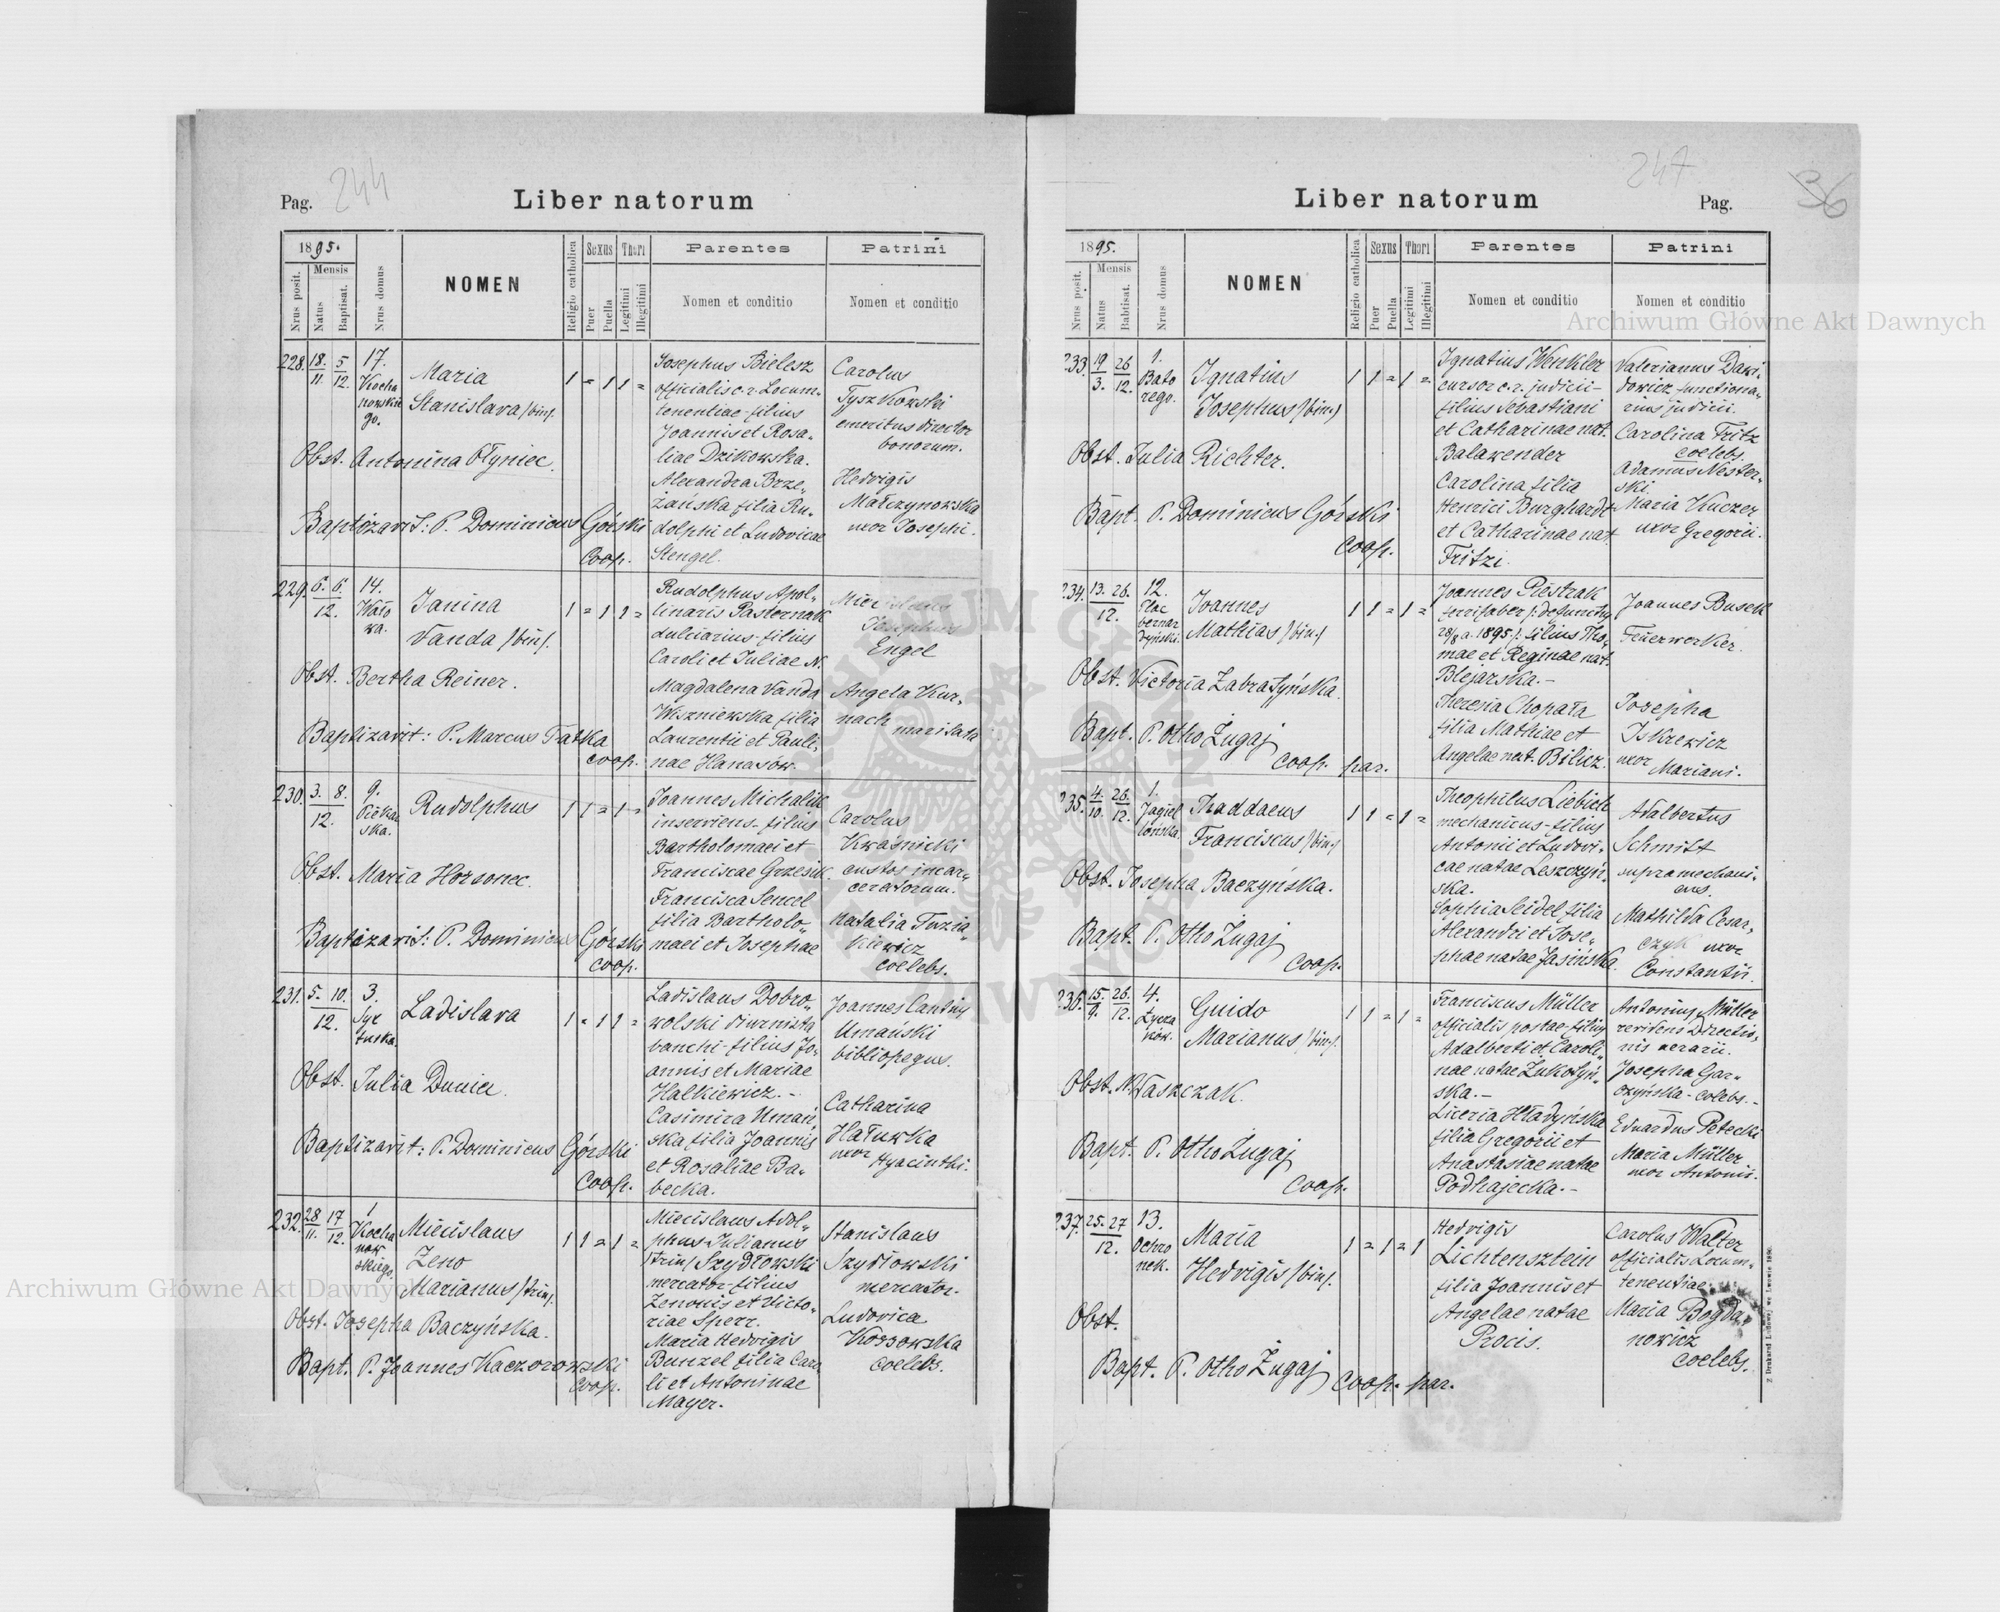 244
Pag.
Liber natorum
1895.
Nrus posit.
Mensis
Natus
Baptisat.
Nrus domus
NOMEN
Religio catholica
Sexus
Puer
Puella
Thori
Legitimi
Illegitimi
Parentes
Nomen et conditio
Patrini
Nomen et conditio
228. 18/11. 5/12. 17. Kochanowskiego.
Maria
Stanislava /bin/.
1 = 1 1 =
Josephus Bielesz
officialis c. r. Locum-
tenentiae filius
Joannis et Rosa-
liae Dzikowska.
Alexandra Brze-
żańska filia Ru-
dolphi et Ludovicae
Stengel.
Carolus
Tyszkowski
emeritus director
bonorum.
Hedvigis
Małczynowska
uxor Josephi.
Obst. Antonina Ołyniec.
Baptizavit: P. Dominicus Górski
Coop.
229. 6. 6./12. 14. Wałowa.
Janina
Vanda /bin/.
1 = 1 1 =
Rudolphus Apol-
linaris Pasternak
dulciarius - filius
Caroli et Juliae N.
Magdalena Vanda
Wiszniewska filia
Laurentii et Pauli-
nae Hanasów.
Miecislaus
Josephus
Engel
Angela Kur-
nach
maritata
Obst. Bertha Reiner.
Baptizavit: P. Marcus Fatka
coop.
230. 3. 8./12. 9. Piekarska.
Rudolphus
1 1 = 1 =
Joannes Michalik
inserviens - filius
Bartholomaei et
Franciscae Grzesik.
Francisca Sencel
filia Bartholo-
maei et Josephae
Carolus
Kwaśnicki
custos incar-
ceratorum.
Natalia Tuzia-
kiewicz
coelebs.
Obst. Maria Horsonec.
Baptizavit: P. Dominicus Górski
coop.
231. 5. 10./12. 3. Sykstuska.
Ladislava
1 = 1 1 =
Ladislaus Dobro-
wolski diurnista
banchi - filius Jo-
annis et Mariae
Halkiewicz. -
Casimira Umań-
ska filia Joannis
et Rosaliae Ba-
becka.
Joannes Cantius
Umański
bibliopegus.
Catharina
Hałuwka
uxor
Hyacinthi.
Obst. Julia Dunia.
Baptizavit: P. Dominicus Górski
Coop.
232. 28/11. 17/12. 1 Kochanowskiego.
Miecislaus
Zeno
Marianus /trin/.
1 1 = 1 =
Miecislaus Adol-
phus Julianus
/trin/ Szydłowski
mercator - filius
Zenonis et Victo-
riae Sperr.
Maria Hedvigis
Bunzel filia Caro-
li et Antoninae
Mayer.
Stanislaus
Szydłowski
mercator.
Ludovica
Kossowska
coelebs.
Obst. Josepha Baczyńska.
Bapt. P. Joannes Kaczorowski
Coop.
247
36
Liber natorum
Pag.
1895.
Nrus posit.
Mensis
Natus
Babtisat.
Nrus domus
NOMEN
Religio catholica
Sexus
Puer
Puella
Thori
Legitimi
Illegitimi
Parentes
Nomen et conditio
Patrini
Nomen et conditio
233. 19/3. 26/12. 1. Batorego.
Ignatius
Josephus /bin./
1 1 = 1 =
Ignatius Wenkler
cursor c. r. judicii -
filius Sebastiani
et Catharinae nat.
Balawender
Carolina filia
Henrici Burghardt
et Catharinae nat.
Fritzi.
Valerianus Dawi-
dowicz functiona-
rius judicii.
Carolina Fritz
coelebs.
Adamus Nester-
ski.
Maria Kuczer
uxor Gregorii.
Obst. Julia Richter.
Bapt. P. Dominicus Górski
Coop.
234. 13. 26./12. 12. Plac bernardyński.
Joannes
Mathias /bin./
1 1 = 1 =
Joannes Piestrak
ferrifaber /: defunctus
28/8 a. 1895 :/ filius Tho-
mae et Reginae nat.
Blejarska. -
Theresia Chopata
filia Mathiae et
Angelae nat. Bilicz.
Joannes Busek
Feuerwerker.
Josepha
Iskrewicz
uxor
Mariani.
Obst. Victoria Zabratyńska.
Bapt. P. Otho Żugaj
Coop. par.
235. 4./10. 26./12. 1. Jagiellońska.
Thaddaeus
Franciscus /bin./
1 1 = 1 =
Theophilus Liebich
mechanicus - filius
Antonii et Ludovi-
cae natae Leszczyń-
ska.
Sophia Seidel filia
Alexandri et Jose-
phae natae Jasińska.
Adalbertus
Schmitt
supramechani-
cus.
Mathilda Cesar-
czyk uxor
Constantii.
Obst. Josepha Baczyńska.
Bapt. P. Otho Żugaj
Coop.
236. 15./9. 26./12. 4. Łyczaków.
Guido
Marianus /bin/.
1 1 = 1 =
Franciscus Müller
officialis postae - filius
Adalberti et Caroli-
nae natae Zukotyń-
ska. -
Liceria Hładyńska
filia Gregorii et
Anastasiae natae
Podhajecka. -
Antonius Müller
revidens Directio-
nis aerarii.
Josepha Gar-
czyńska - colebs. -
Eduardus Petecki
Maria Müller
uxor Antonii.
Obst. N. Waszczak.
Bapt. P. Otho Żugaj
Coop.
237. 25. 27/12. 13. Ochronek.
Maria
Hedvigis /bin/.
1 = 1 = 1
Hedvigis
Lichtensztein
filia Joannis et
Angelae natae
Procis.
Carolus Walter
officialis Locum-
tenentiae.
Maria Bogda-
nowicz
coelebs.
Obst.
Bapt. P. Otho Żugaj
Coop. par.
Archiwum Główne Akt Dawnych
Archiwum Główne Akt Dawnych